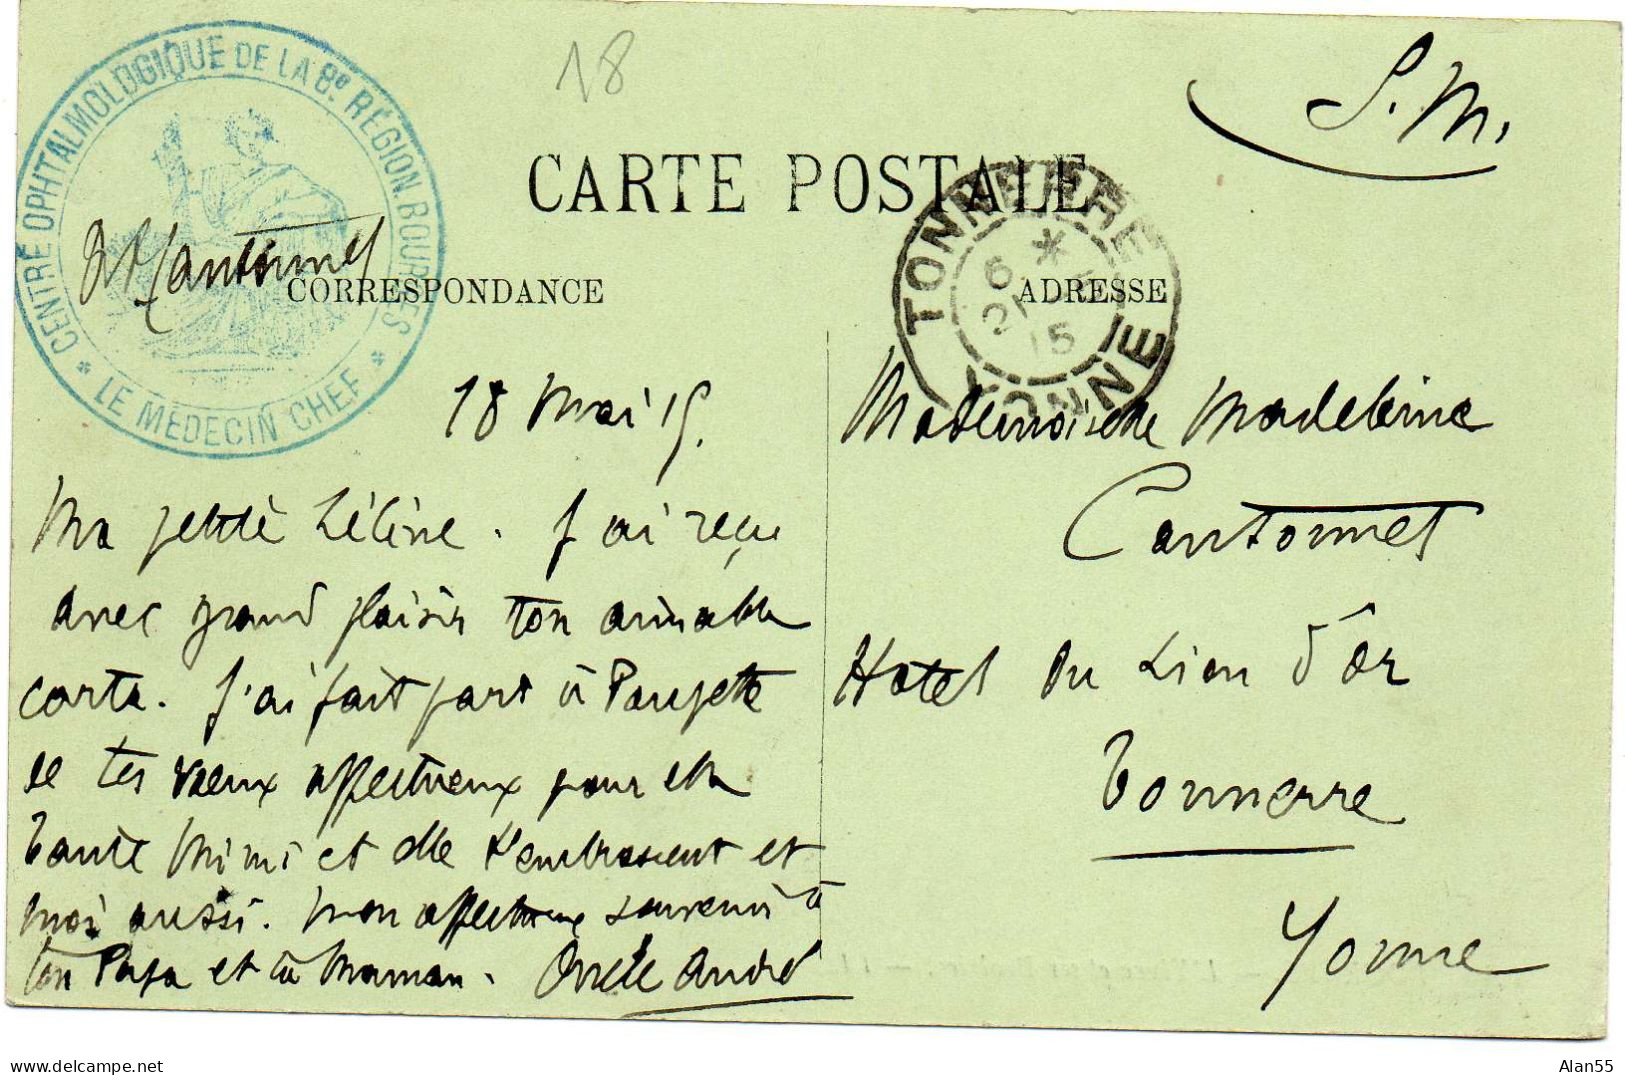 18
S. M.
CENTRE OPHTALMOLOGIQUE DE LA 8e RÉGION. BOURGES
* LE MÉDECIN CHEF *
Dr Cantonnet
CARTE POSTALE
CORRESPONDANCE
ADRESSE
TONNERRE
6 *
21
15
YONNE
18 Mai 15.
Ma petite Léline. J'ai reçu
avec grand plaisir ton aimable
carte. J'ai fait part à Paupette
de tes vœux affectueux pour elle
Tante Mimi et elle t'embrassent et
moi aussi. Mon affectueux souvenir à
ton Papa et ta Maman. Oncle André
Mademoiselle Madeleine
Cantonnet
Hotel du Lion d'or
Tonnerre
Yonne
Alan55